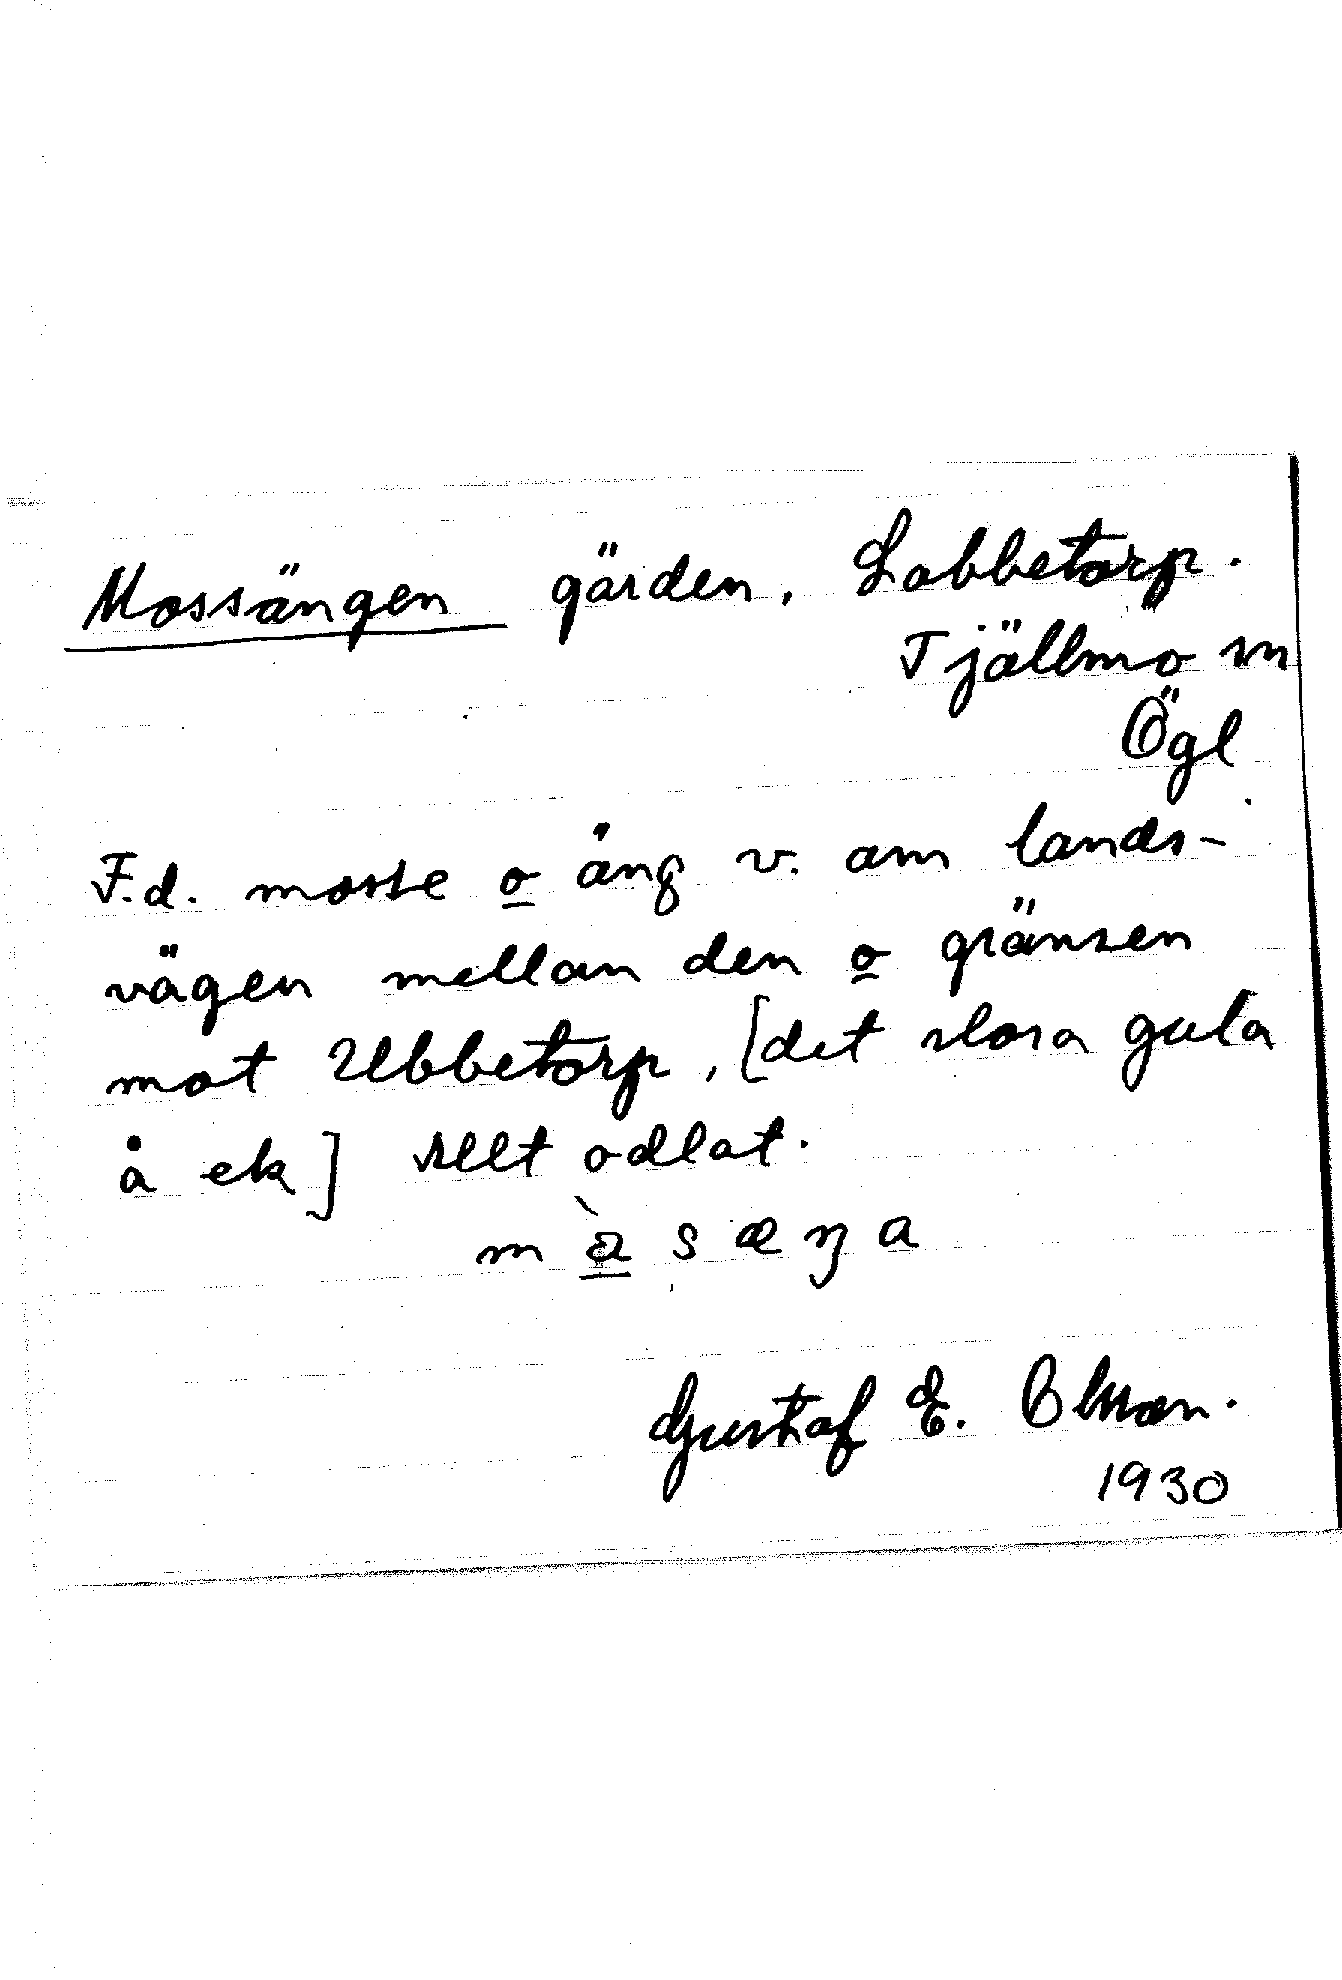 Mossängen gärden, Labbetorp.
Tjällmo sn
Ögl
F.d. mosse o äng v. om lands-
vägen mellan den o gränsen
mot Ubbetorp, [det stora gula
å ek] Allt odlat.
m à s æ ŋ a
Gustaf E. Ohlson.
1930